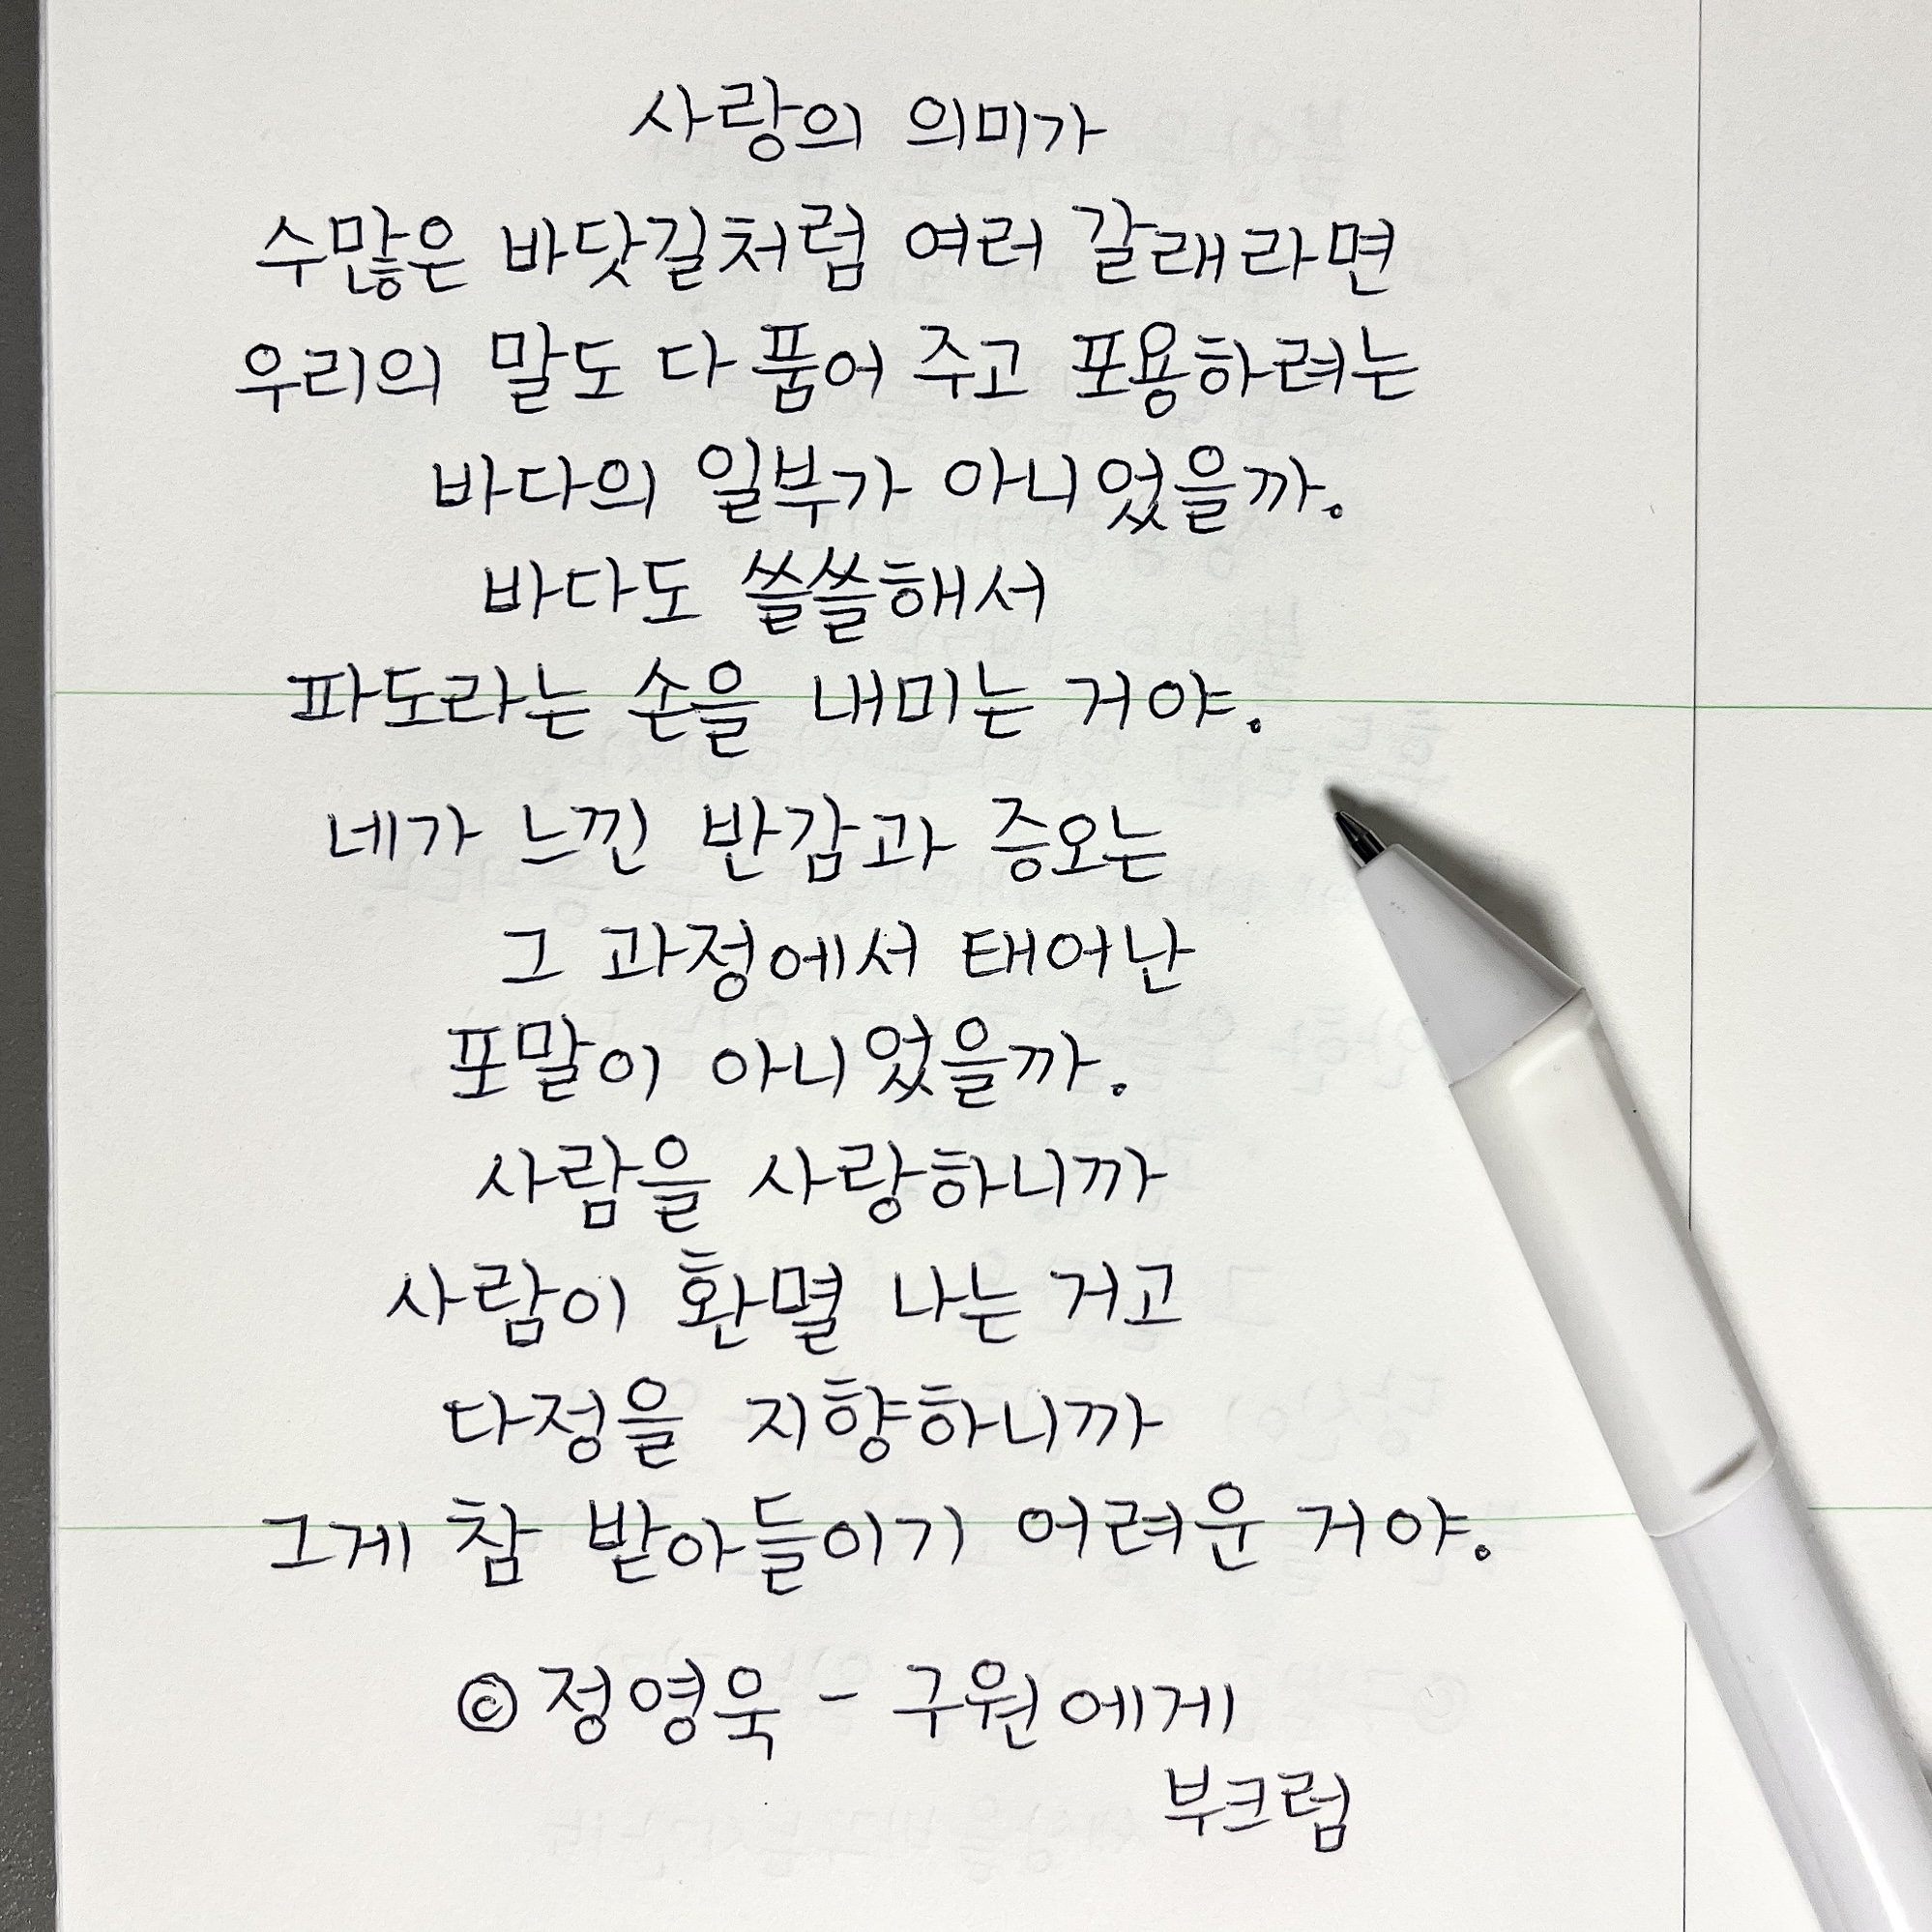 사랑의 의미가
수많은 바닷길처럼 여러 갈래라면
우리의 말도 다 품어 주고 포용하려는
바다의 일부가 아니었을까.
바다도 쓸쓸해서
파도라는 손을 내미는 거야.
네가 느낀 반감과 증오는
그 과정에서 태어난
포말이 아니었을까.
사람을 사랑하니까
사람이 환멸 나는 거고
다정을 지향하니까
그게 참 받아들이기 어려운 거야.
© 정영욱 - 구원에게
부크럼